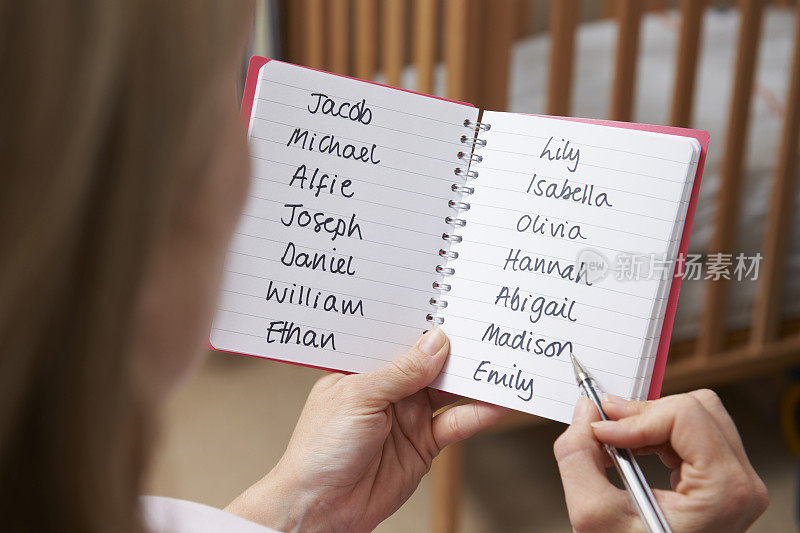 Jacob
Michael
Alfie
Joseph
Daniel
William
Ethan
Lily
Isabella
Olivia
Hannah
Abigail
Madison
Emily
新浪众测